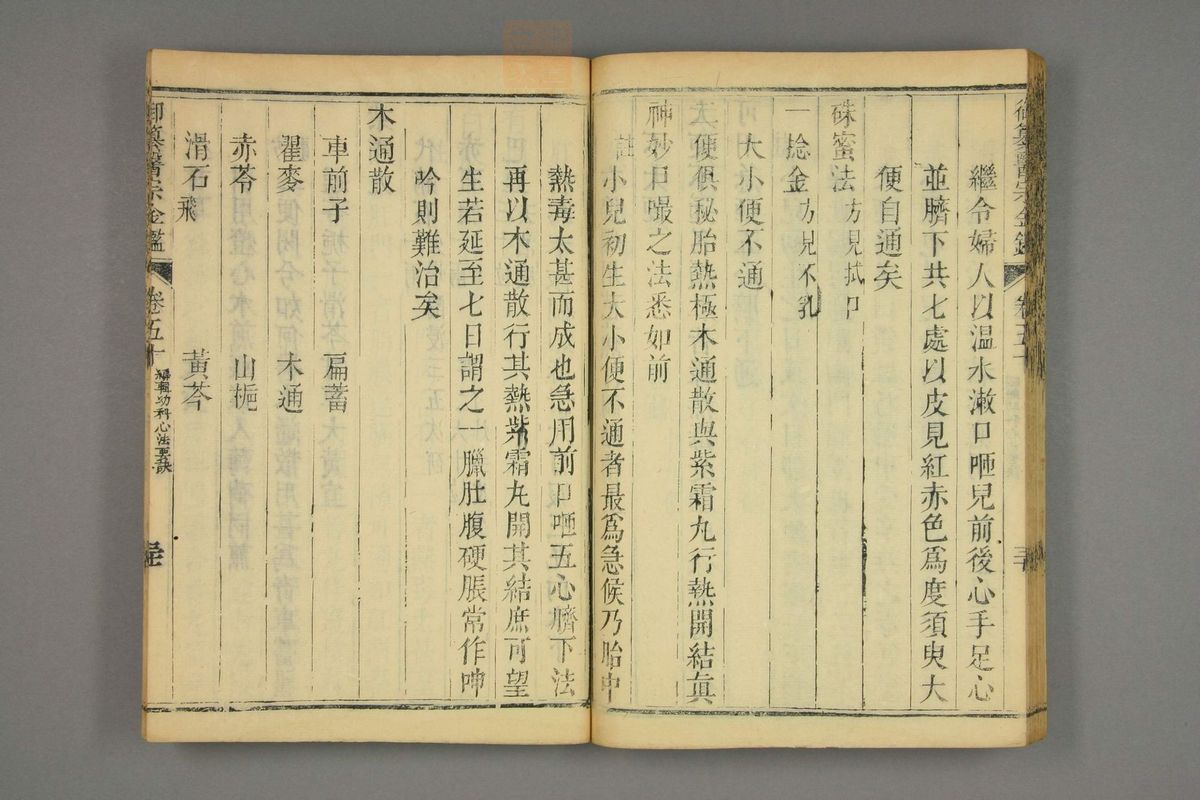 御纂醫宗金鑑 卷五十 三十
繼令婦人以温水漱口咂兒前後心手足心
並臍下共七處以皮見紅赤色爲度須臾大
便自通矣
硃蜜法方見拭口
一捻金方見不乳
大小便不通
二便俱秘胎熱極木通散與紫霜丸行熱開結眞
神妙口嘬之法悉如前
註小兒初生大小便不通者最爲急候乃胎中
熱毒太甚而成也急用前口咂五心臍下法
再以木通散行其熱紫霜丸開其結庶可望
生若延至七日謂之一臘肚腹硬脹常作呻
吟則難治矣
木通散
車前子 萹蓄
瞿麥 木通
赤苓 山梔
滑石飛 黃芩
御纂醫宗金鑑 卷五十 編輯幼科心法要訣